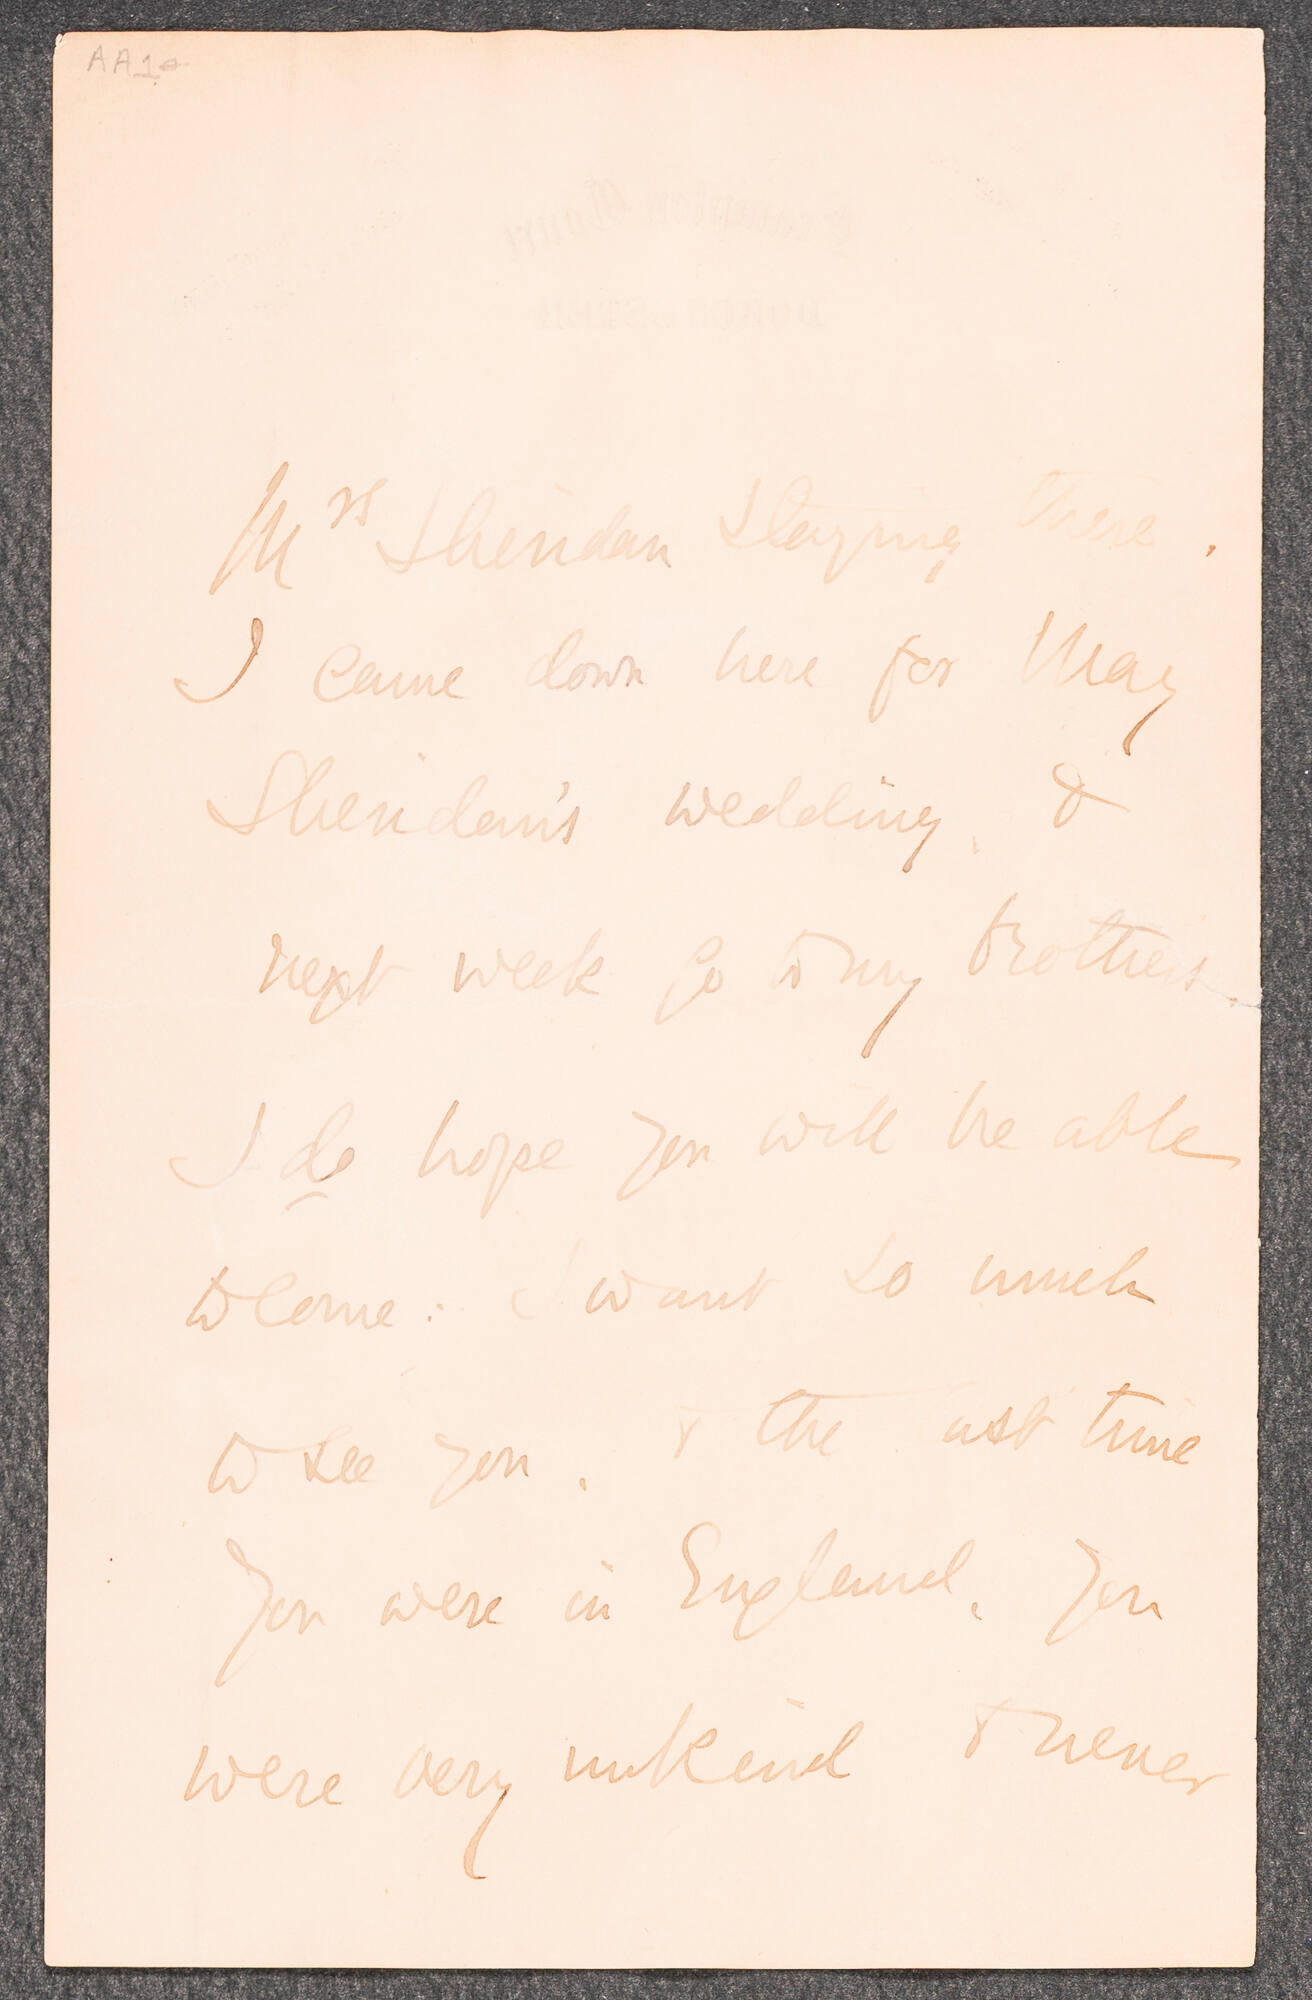 AA1
Mrs Sheridan staying there.
I came down here for May
Sheridan's wedding, &
next week go to my brothers.
I do hope you will be able
to come: I want so much
to see you, & the last time
you were in England, you
were very unkind & never